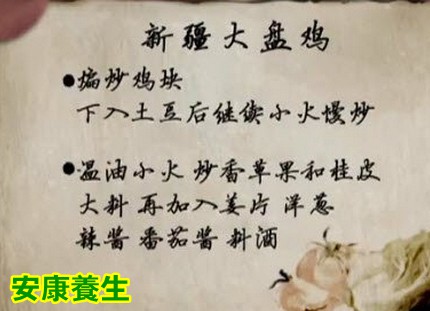 新疆大盘鸡
●煸炒鸡块
下入土豆后继续小火慢炒
●温油小火 炒香草果和桂皮
大料 再加入姜片 洋葱
辣酱 番茄酱 料酒
安康養生